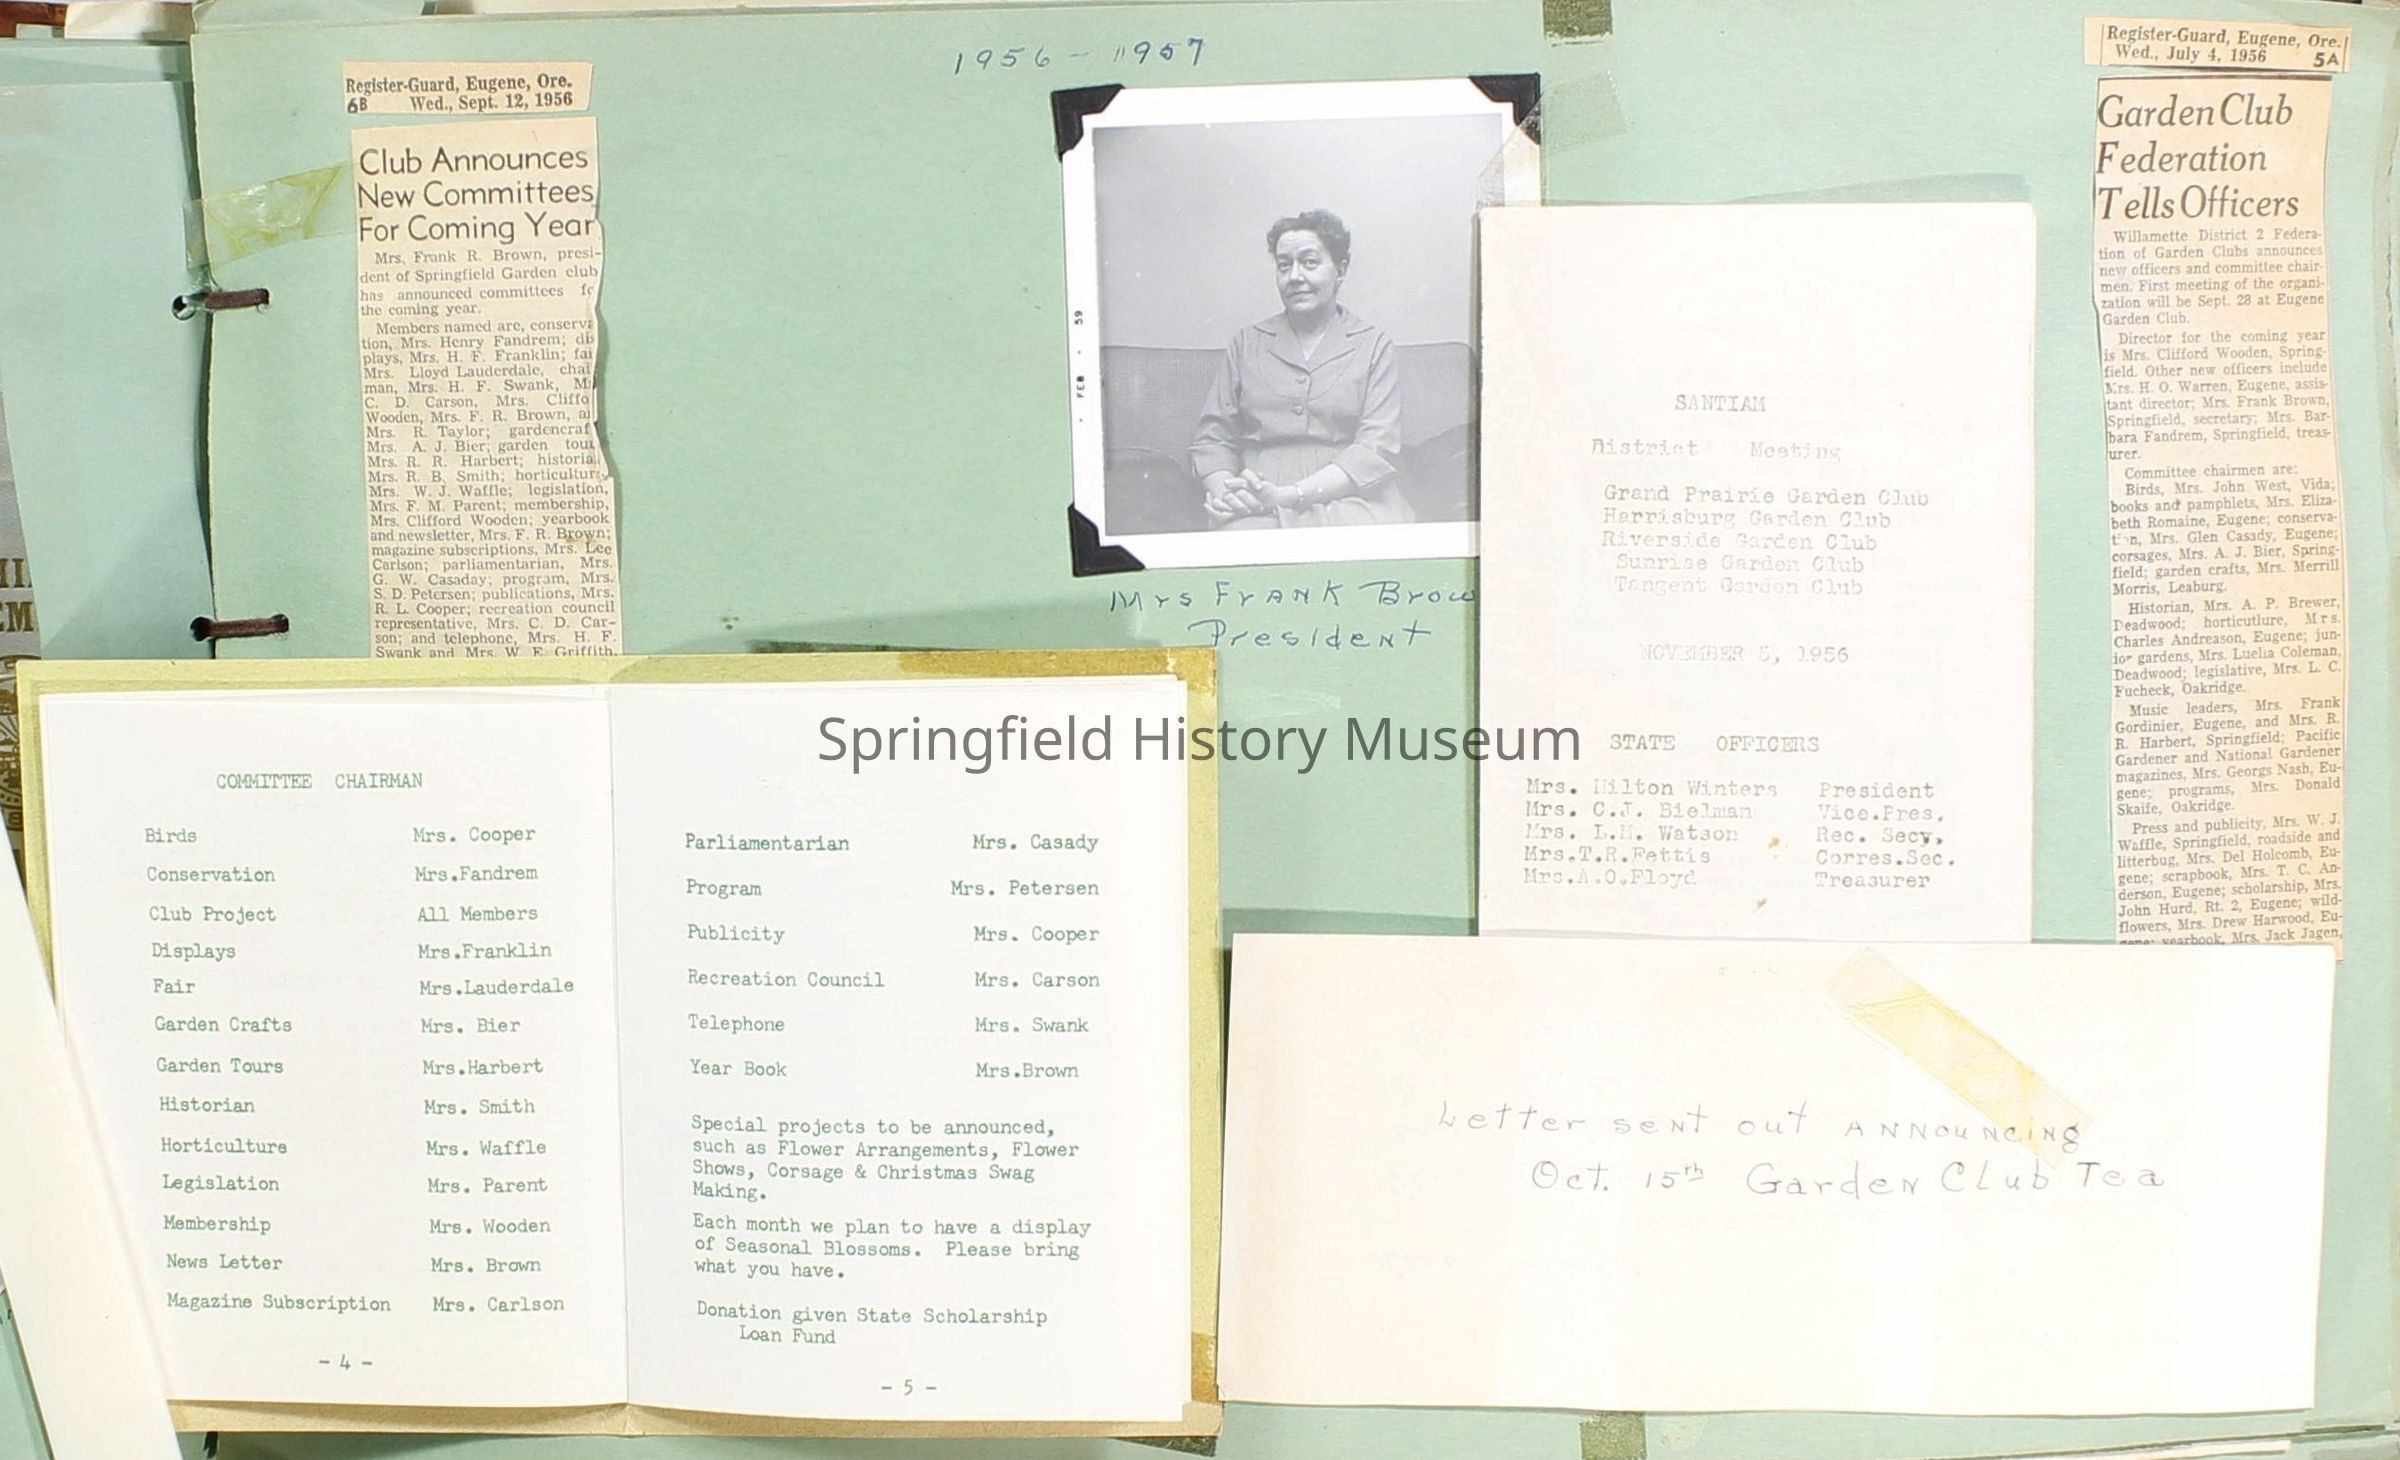 1956 - 1957
Register-Guard, Eugene, Ore.
6B Wed., Sept. 12, 1956
Club Announces
New Committees
For Coming Year
Mrs. Frank R. Brown, presi-
dent of Springfield Garden club
has announced committees fo
the coming year.
Members named are, conserva
tion, Mrs. Henry Fandrem; dis
plays, Mrs. H. F. Franklin; fai
Mrs. Lloyd Lauderdale, chai
man, Mrs. H. F. Swank, M
C. D. Carson, Mrs. Cliffo
Wooden, Mrs. F. R. Brown, a
Mrs. R. Taylor; gardencraf
Mrs. A. J. Bier; garden tou
Mrs. R. R. Harbert; historia
Mrs. R. B. Smith; horticultur
Mrs. W. J. Waffle; legislation,
Mrs. F. M. Parent; membership,
Mrs. Clifford Wooden; yearbook
and newsletter, Mrs. F. R. Brown;
magazine subscriptions, Mrs. Lee
Carlson; parliamentarian, Mrs.
G. W. Casaday; program, Mrs.
S. D. Petersen; publications, Mrs.
R. L. Cooper; recreation council
representative, Mrs. C. D. Car-
son; and telephone, Mrs. H. F.
Swank and Mrs. W. E. Griffith.
FEB · 59
Mrs Frank Brow
President
SANTIAM
District Meeting
Grand Prairie Garden Club
Harrisburg Garden Club
Riverside Garden Club
Sunrise Garden Club
Tangent Garden Club
NOVEMBER 5, 1956
STATE OFFICERS
Mrs. Milton Winters President
Mrs. C.J. Bielman Vice.Pres.
Mrs. L.M. Watson Rec. Secy,
Mrs.T.R.Fettis Corres.Sec.
Mrs.A.O.Floyd Treasurer
Register-Guard, Eugene, Ore.
Wed., July 4, 1956 5A
Garden Club
Federation
Tells Officers
Willamette District 2 Federa-
tion of Garden Clubs announces
new officers and committee chair-
men. First meeting of the organi-
zation will be Sept. 28 at Eugene
Garden Club.
Director for the coming year
is Mrs. Clifford Wooden, Spring-
field. Other new officers include
Mrs. H. O. Warren, Eugene, assis-
tant director; Mrs. Frank Brown,
Springfield, secretary; Mrs. Bar-
bara Fandrem, Springfield, treas-
urer.
Committee chairmen are:
Birds, Mrs. John West, Vida;
books and pamphlets, Mrs. Eliza-
beth Romaine, Eugene; conserva-
tion, Mrs. Glen Casady, Eugene;
corsages, Mrs. A. J. Bier, Spring-
field; garden crafts, Mrs. Merrill
Morris, Leaburg.
Historian, Mrs. A. P. Brewer,
Deadwood; horticutlure, Mrs.
Charles Andreason, Eugene; jun-
ior gardens, Mrs. Luelia Coleman,
Deadwood; legislative, Mrs. L. C.
Fucheck, Oakridge.
Music leaders, Mrs. Frank
Gordinier, Eugene, and Mrs. R.
R. Harbert, Springfield; Pacific
Gardener and National Gardener
magazines, Mrs. Georgs Nash, Eu-
gene; programs, Mrs. Donald
Skaife, Oakridge.
Press and publicity, Mrs. W. J.
Waffle, Springfield, roadside and
litterbug, Mrs. Del Holcomb, Eu-
gene; scrapbook, Mrs. T. C. An-
derson, Eugene; scholarship, Mrs.
John Hurd, Rt. 2, Eugene; wild-
flowers, Mrs. Drew Harwood, Eu-
gene; yearbook, Mrs. Jack Jagen,
Springfield History Museum
COMMITTEE CHAIRMAN
Birds Mrs. Cooper
Conservation Mrs.Fandrem
Club Project All Members
Displays Mrs.Franklin
Fair Mrs.Lauderdale
Garden Crafts Mrs. Bier
Garden Tours Mrs.Harbert
Historian Mrs. Smith
Horticulture Mrs. Waffle
Legislation Mrs. Parent
Membership Mrs. Wooden
News Letter Mrs. Brown
Magazine Subscription Mrs. Carlson
- 4 -
Parliamentarian Mrs. Casady
Program Mrs. Petersen
Publicity Mrs. Cooper
Recreation Council Mrs. Carson
Telephone Mrs. Swank
Year Book Mrs.Brown
Special projects to be announced,
such as Flower Arrangements, Flower
Shows, Corsage & Christmas Swag
Making.
Each month we plan to have a display
of Seasonal Blossoms. Please bring
what you have.
Donation given State Scholarship
Loan Fund
- 5 -
Letter sent out announcing
Oct. 15th Garden Club Tea